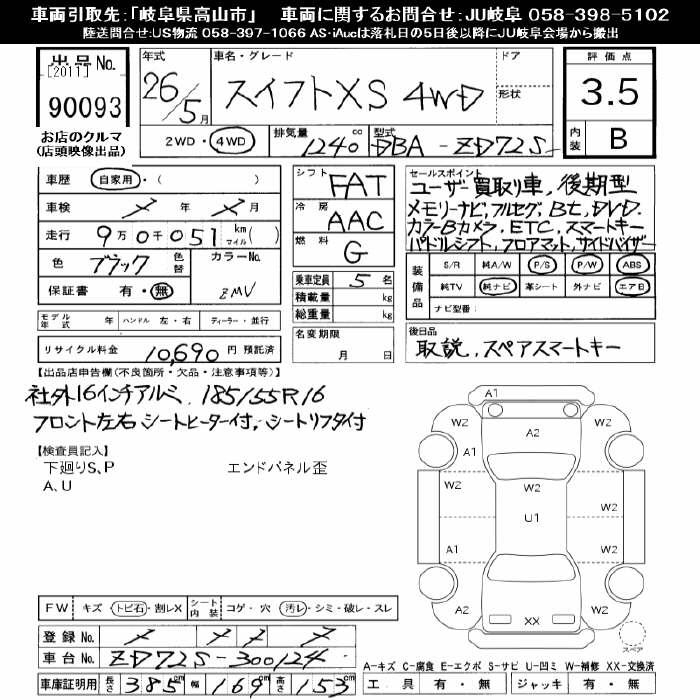 車両引取先:「岐阜県高山市」 車両に関するお問合せ:JU岐阜 058-398-5102
陸送問合せ:US物流 058-397-1066 AS・iAucは落札日の5日後以降にJU岐阜会場から搬出
出品No.
[2011]
90093
お店のクルマ
(店頭映像出品)
年式 26/5月
車名・グレード スイフトXS 4WD
ドア
形状
評価点 3.5
内装 B
2WD・4WD
排気量 1240 cc
型式 DBA-ZD72S
車歴 自家用・( )
車検 年 月
走行 9万0千051 km マイル( )
色 ブラック 色替
カラーNo. ZMV
保証書 有・無
モデル年式 年 ハンドル 左・右 ディーラー・並行
リサイクル料金 10,690 円 預託済
シフト FAT
冷房 AAC
燃料 G
乗車定員 5 名
積載量 kg
総重量 kg
名変期限 月 日
セールスポイント
ユーザー買取り車, 後期型
メモリーナビ, フルセグ, Bt, DVD.
カラーBカメラ, ETC, スマートキー
パドルシフト, フロアマット, サイドバイザー
装備品
S/R 純A/W P/S P/W ABS
純TV 純ナビ 革シート 外ナビ エアB
ナビ型番:
後日品
取説, スペアスマートキー
【出品店申告欄(不良箇所・欠品・注意事項等)】
社外16インチアルミ. 185/55R16
フロント左右シートヒーター付, シートリフタ付
【検査員記入】
下廻りS、P エンドパネル歪
A、U
A1
W2 A2 W2
A1
W2 W2 W2
U1
A1 W2
A2 XX W2
スペア
FW キズ・トビ石・割レX シート内装 コゲ・穴 汚レ・シミ・破レ・スレ
登録No.
車台No. ZD72S-300124
車庫証明用 長さ 385 cm 幅 169 cm 高さ 153 cm
A-キズ C-腐食 E-エクボ S-サビ U-凹ミ W-補修 XX-交換済
工具 有・無 ジャッキ 有・無